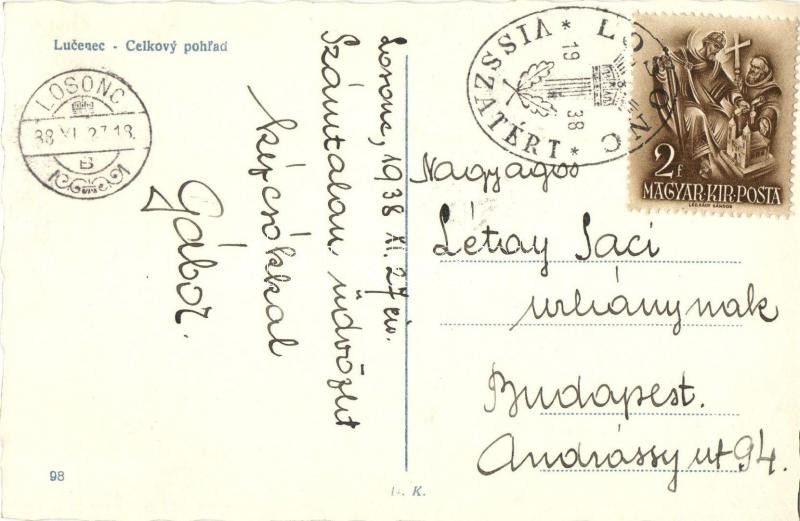 Lučenec - Celkový pohľad
LOSONC
38 XI. 27.18.
B
Losonc, 1938 XI. 27 én.
Számtalan üdvözlet
kézcsókkal
Gábor.
98
L. K.
LOSONC
VISSZATÉRT
1938
2f
MAGYAR·KIR·POSTA
LEGRÁDY SÁNDOR
Nagyságos
Létay Saci
urleánynak
Budapest.
Andrássy ut 94.